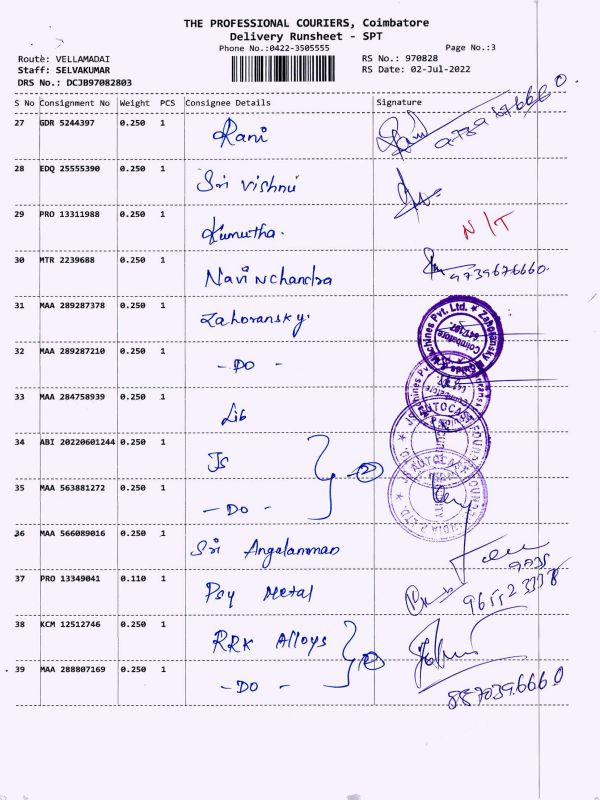 THE PROFESSIONAL COURIERS, Coimbatore
Delivery Runsheet - SPT
Phone No.:0422-3505555
Page No.:3
Route: VELLAMADAI
RS No.: 970828
Staff: SELVAKUMAR
RS Date: 02-Jul-2022
DRS No.: DCJB97082803
S No Consignment No Weight PCS Consignee Details Signature
27 GDR 5244397 0.250 1 Rani
28 EDQ 25555390 0.250 1 Sri Vishnu
29 PRO 13311988 0.250 1 Kumutha. N/T
30 MTR 2239688 0.250 1 Navinchandra 9739676660.
31 MAA 289287378 0.250 1 Zahoransky.
32 MAA 289287210 0.250 1 - DO -
33 MAA 284758939 0.250 1 Lib
34 ABI 20220601244 0.250 1 Js 2
35 MAA 563881272 0.250 1 - DO -
36 MAA 566089016 0.250 1 Sri Angalamman
37 PRO 13349041 0.110 1 Psy Metal
38 KCM 12512746 0.250 1 RRK Alloys 2
39 MAA 288807169 0.250 1 - DO -